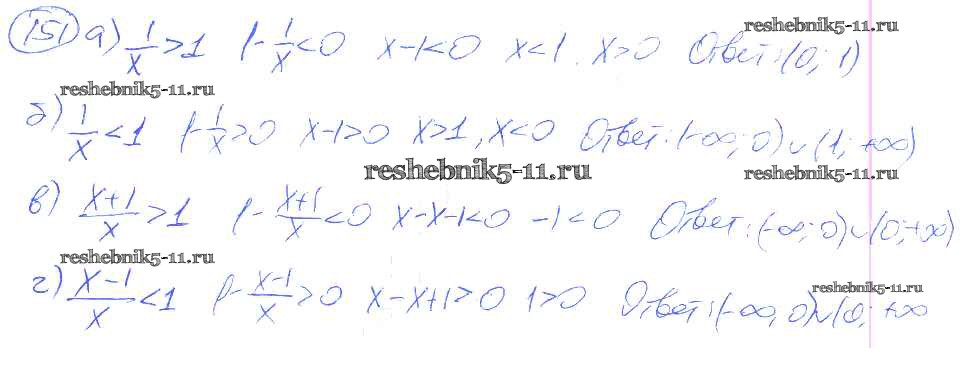 reshebnik5-11.ru
151 а) 1/x > 1 1 - 1/x < 0 x-1<0 x<1. x>0 Ответ: (0; 1)
reshebnik5-11.ru
б) 1/x < 1 1 - 1/x > 0 x-1>0 x>1, x<0 Ответ: (-∞; 0) ∪ (1; +∞)
reshebnik5-11.ru reshebnik5-11.ru
в) x+1/x > 1 1 - x+1/x < 0 x-x-1<0 -1<0 Ответ: (-∞; 0) ∪ (0; +∞)
reshebnik5-11.ru
г) x-1/x < 1 1 - x-1/x > 0 x-x+1>0 1>0 Ответ: (-∞, 0) ∪ (0; +∞
reshebnik5-11.ru